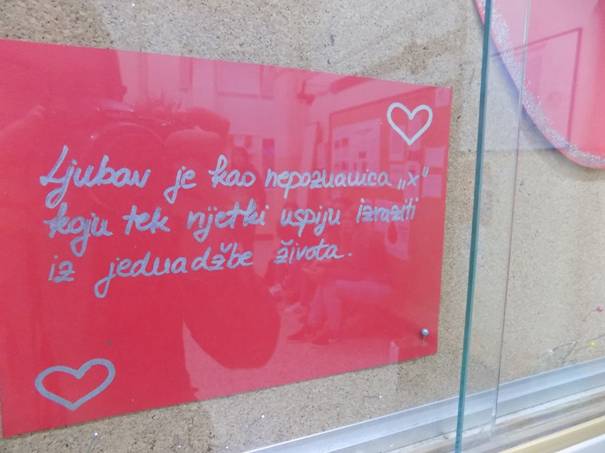 Ljubav je kao nepoznanica „x“
koju tek rijetki uspiju izraziti
iz jednadžbe života.